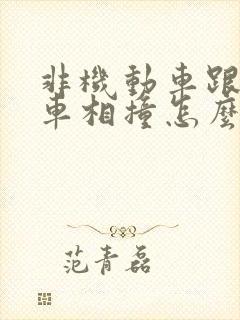 非機動車跟
車相撞怎麼
范青磊